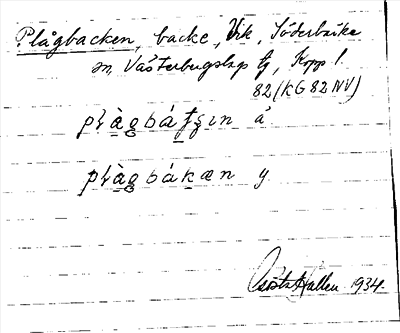 Plågbacken, backe, Vik, Söderbärke
sn, Västerbergslags tg, Kopp l.
82 (KG 82 NV)
på̀gbátʂın ä.
på̀gbákæn y.
Gösta Hallen 1934.